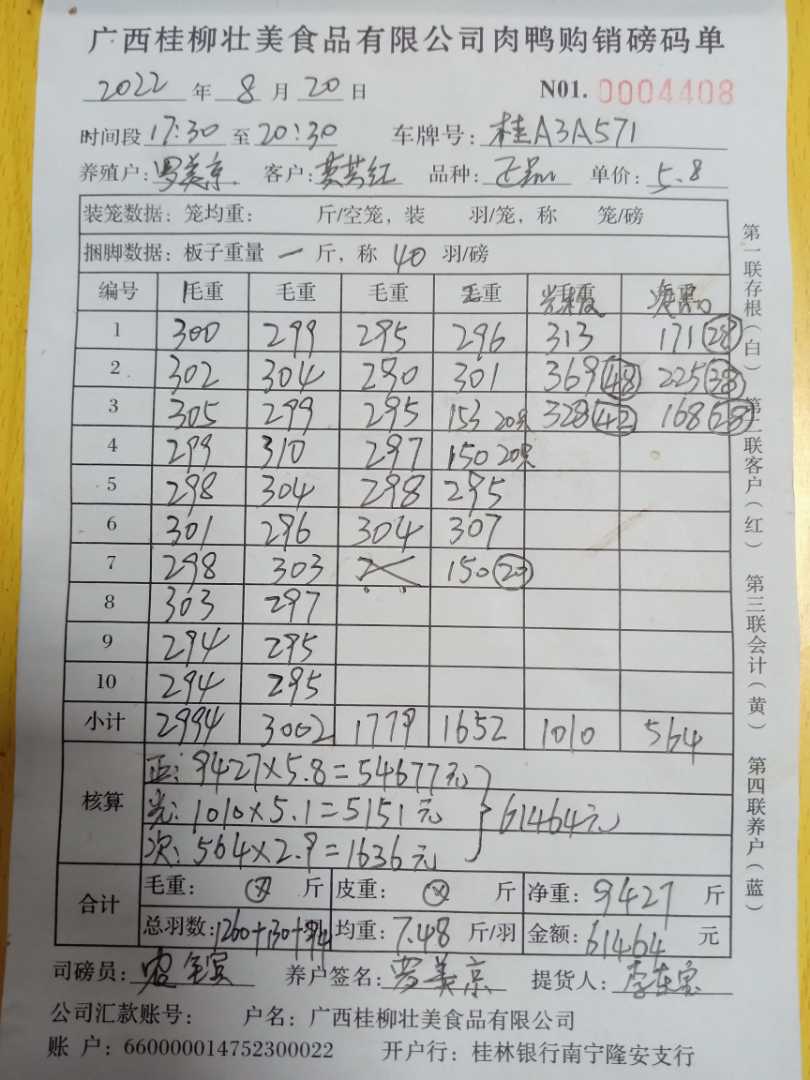 广西桂柳壮美食品有限公司肉鸭购销磅码单
2022 年 8 月 20 日 N01. 0004408
时间段 17:30 至 20:30 车牌号: 桂A3A571
养殖户: 罗美京 客户: 黄共红 品种: 正品 单价: 5.8
装笼数据: 笼均重: 斤/空笼, 装 羽/笼, 称 笼/磅
捆脚数据: 板子重量 一 斤, 称 40 羽/磅
编号 毛重 毛重 毛重 毛重
1 300 299 295 296 313 171 (28)
2 302 304 290 301 369 (48) 225 (38)
3 305 299 295 153 20只 328 (42) 168 (28)
4 299 310 297 150 20只
5 298 304 298 295
6 301 296 304 307
7 298 303 150 (20)
8 303 297
9 294 295
10 294 295
小计 2994 3002 1779 1652 1010 564
核算
正: 9427×5.8=54677元
光: 1010×5.1=5151元 } 61464元
次: 564×2.9=1636元
合计
毛重: 斤 皮重: 斤 净重: 9427 斤
总羽数: 1260+130+94 均重: 7.48 斤/羽 金额: 61464 元
司磅员: 养户签名: 罗美京 提货人: 李在宝
公司汇款账号: 户名: 广西桂柳壮美食品有限公司
账 户: 660000014752300022 开户行: 桂林银行南宁隆安支行
第一联存根(白) 第二联客户(红) 第三联会计(黄) 第四联养户(蓝)